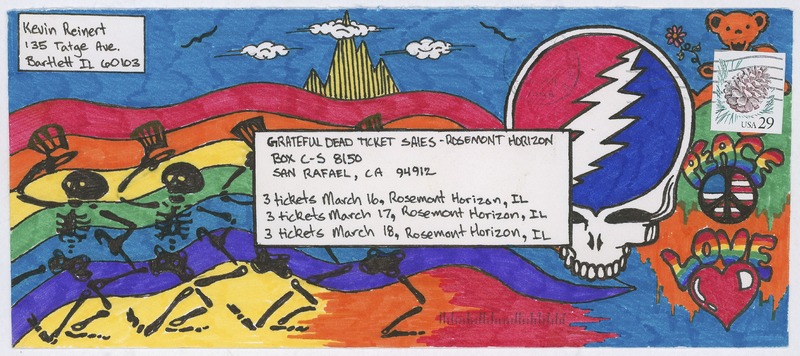 Kevin Reinert
135 Tatge Ave.
Bartlett IL 60103
USA 29
GRATEFUL DEAD TICKET SALES - ROSEMONT HORIZON
BOX C-S 8150
SAN RAFAEL, CA 94912
3 tickets March 16, Rosemont Horizon, IL
3 tickets March 17, Rosemont Horizon, IL
3 tickets March 18, Rosemont Horizon, IL
PEACE
LOVE